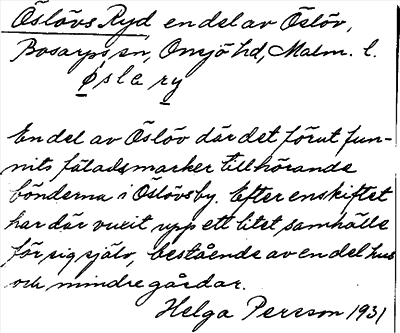 Öslövs Ryd, en del av Öslöv,
Bosarps sn, Onsjö hd, Malm. l.
øsla ry
En del av Öslöv där det förut fun-
nits fäladsmarker tillhörande
bönderna i Öslövsby. Efter enskiftet
har där vuxit upp ett litet samhälle
för sig själv, bestående av en del hus
och mindre gårdar.
Helga Persson 1931